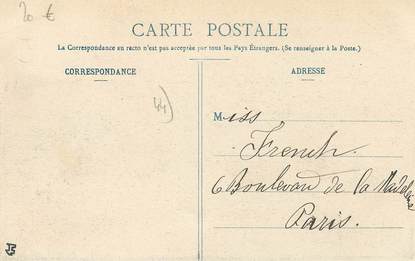 20 €
CARTE POSTALE
La Correspondance au recto n'est pas acceptée par tous les Pays Étrangers. (Se renseigner à la Poste.)
CORRESPONDANCE
ADRESSE
44)
Miss
French.
6 Boulevard de la Madeleine
Paris.